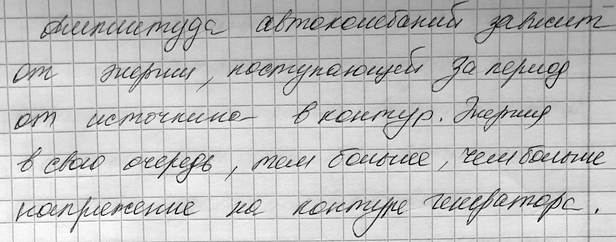 Амплитуда автоколебаний зависит
от энергии, поступающей за период
от источника в контур. Энергия
в свою очередь, тем больше, чем больше
напряжение на контуре генератора.